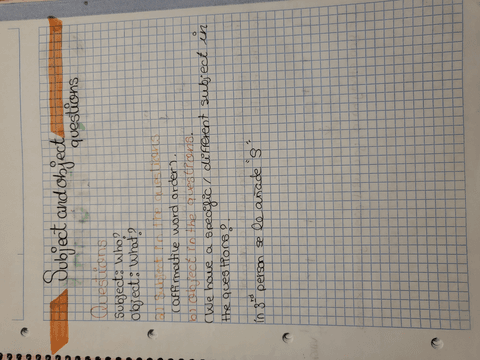 Subject and object
questions
Questions
Subject: Who?
Object: What?
a) Subject in the questions
(affirmative word order).
b) object in the questions.
(We have a specific / different subject in
the questions?.
In 3rd person se le añade "S".